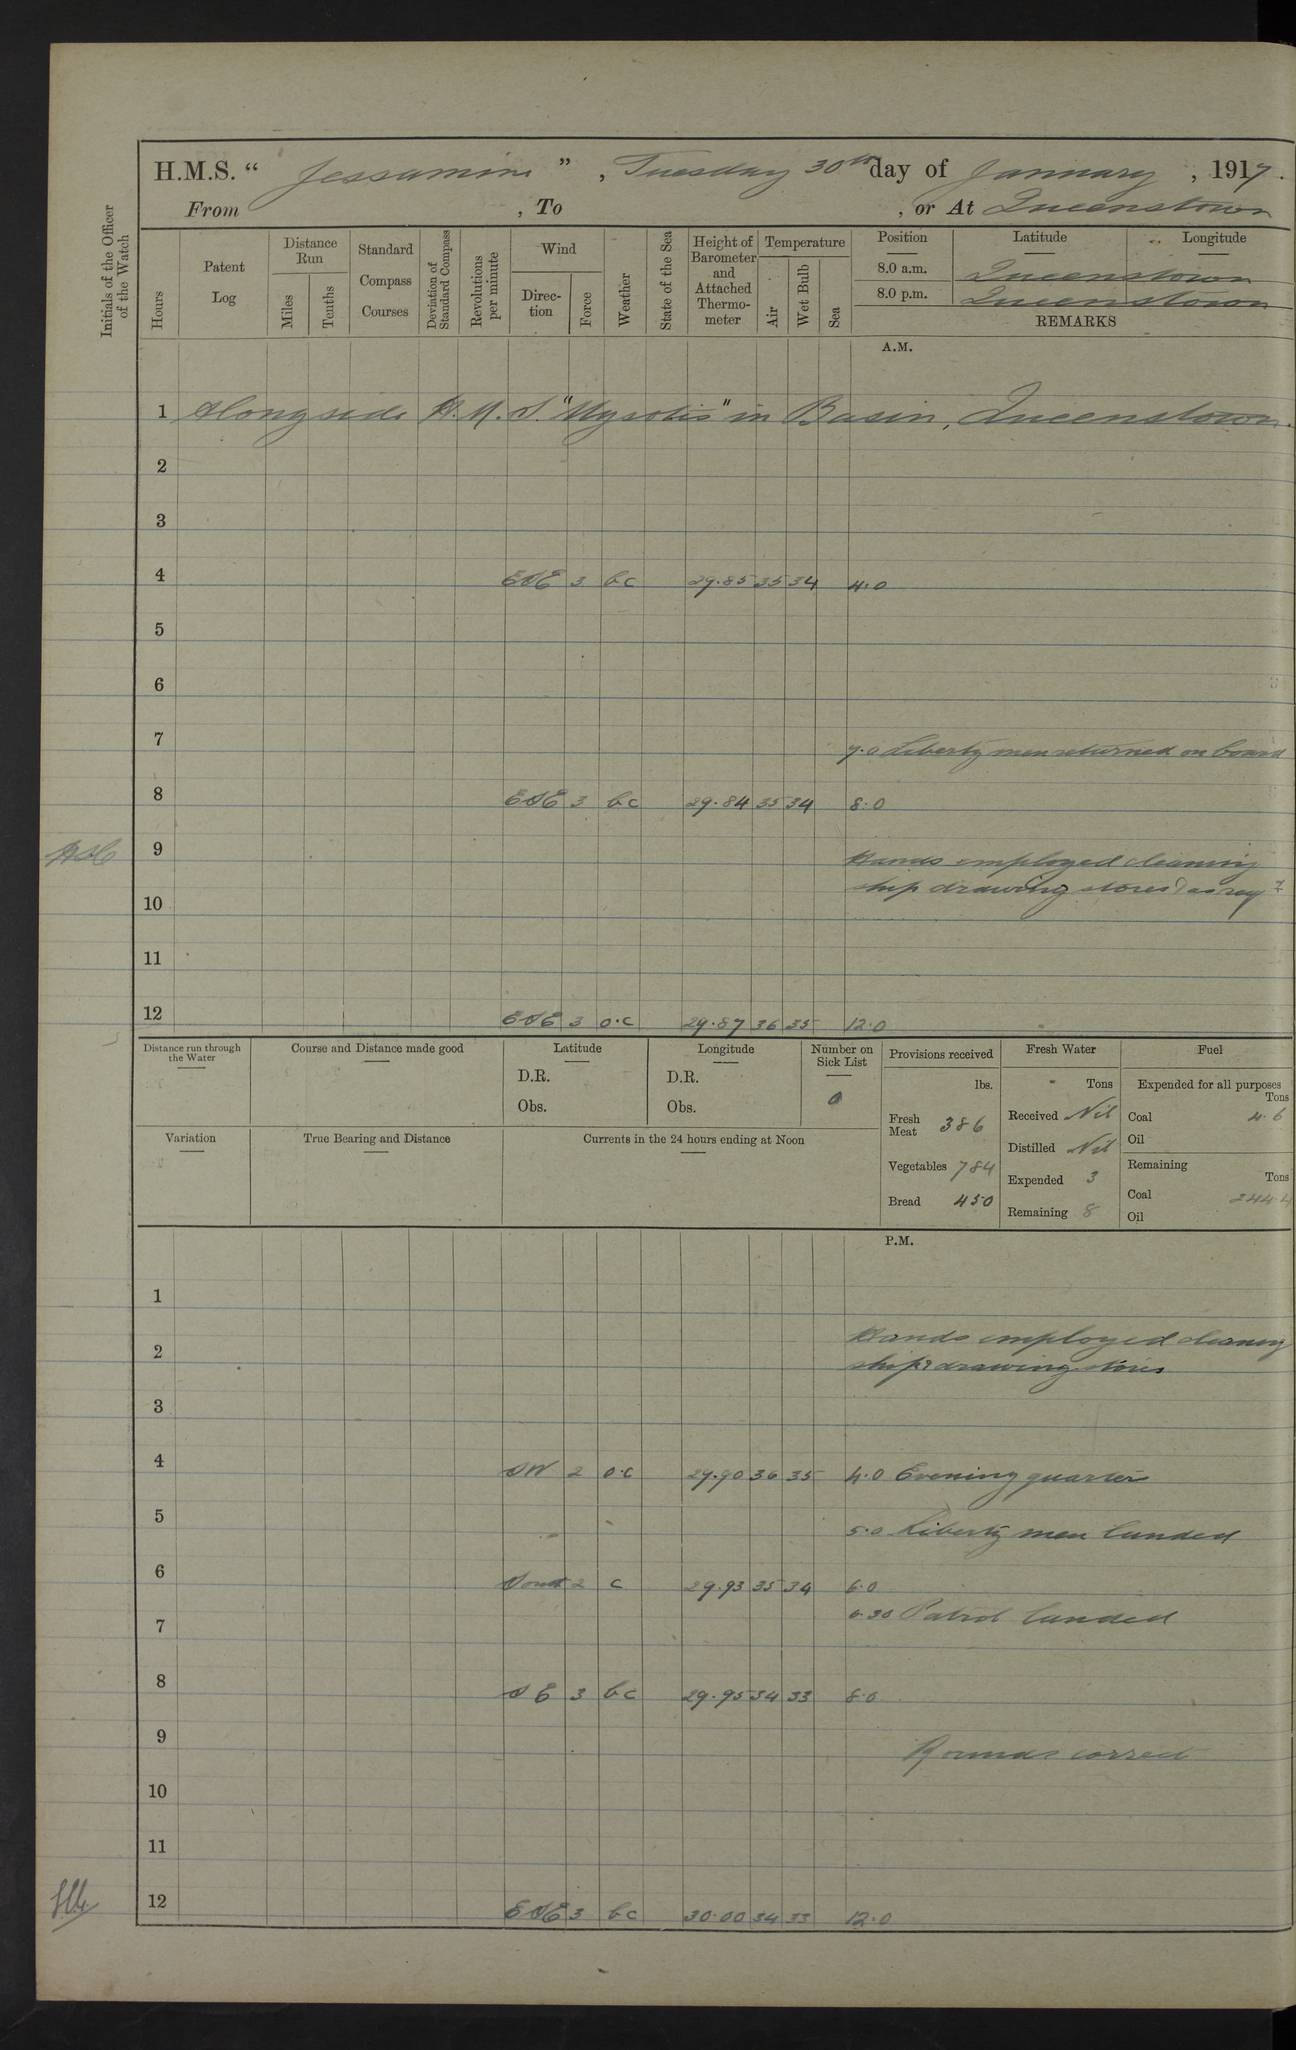 H.M.S. “ Jessamine ” , Tuesday 30th day of January , 1917.
From , To , or At Queenstown
Initials of the Officer of the Watch
Hours
Patent Log
Distance Run
Miles
Tenths
Standard Compass Courses
Deviation of Standard Compass
Revolutions per minute
Wind
Direc-tion
Force
Weather
State of the Sea
Height of Barometer and Attached Thermo-meter
Temperature
Air
Wet Bulb
Sea
Position Latitude Longitude
8.0 a.m. Queenstown
8.0 p.m. Queenstown
REMARKS
A.M.
1 Alongside H.M.S. "Myosotis" in Basin, Queenstown.
2
3
4 ESE 3 bc 29.85 35 34 4.0
5
6
7 7.0 Liberty men returned on board
8 ESE 3 bc 29.84 35 34 8.0
9 Hands employed cleaning
ship drawing stores & as req
10
11
12 ESE 3 o.c 29.87 36 35 12.0
Distance run through the Water
Course and Distance made good
Latitude
D.R.
Obs.
Longitude
D.R.
Obs.
Number on Sick List
0
Variation
True Bearing and Distance
Currents in the 24 hours ending at Noon
Provisions received
lbs.
Fresh Meat 386
Vegetables 784
Bread 450
Fresh Water
Tons
Received Nil
Distilled Nil
Expended 3
Remaining 8
Fuel
Expended for all purposes
Tons
Coal 4.6
Oil
Remaining
Tons
Coal 244.4
Oil
P.M.
1
2 Hands employed cleaning
ship & drawing stores
3
4 SW 2 o.c 29.90 36 35 4.0 Evening quarters
5 5.0 Liberty men landed
6 South 2 c 29.93 35 34 6.0
6.30 Patrol landed
7
8 SE 3 bc 29.95 34 33 8.0
9 Rounds correct
10
11
12 ESE 3 bc 30.00 34 33 12.0